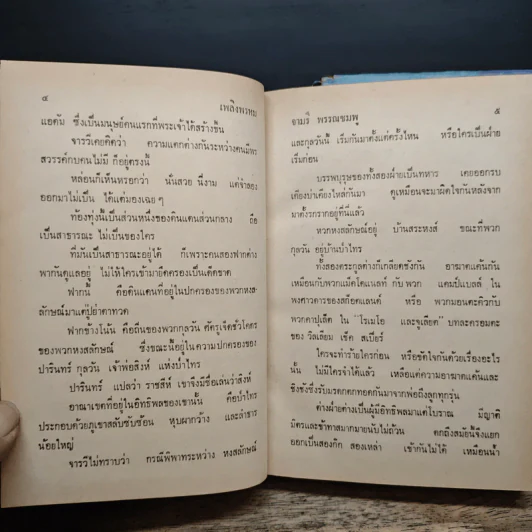 ๔ เพลิงพรหม
แอดัม ซึ่งเป็นมนุษย์คนแรกที่พระเจ้าได้สร้างขึ้น
จารวีเคยคิดว่า ความแตกต่างกันระหว่างคนมีพร
สวรรค์กับคนไม่มี ก็อยู่ตรงนี้
หล่อนก็เห็นหรอกว่า นั่นสวย นี่งาม แต่จำลอง
ออกมาไม่เป็น ได้แต่มองเฉย ๆ
ท้องทุ่งนั้นเป็นส่วนหนึ่งของดินแดนส่วนกลาง ถือ
เป็นสาธารณะ ไม่เป็นของใคร
ที่มันเป็นสาธารณะอยู่ได้ ก็เพราะคนสองฟากต่าง
พากันดูแลอยู่ ไม่ให้ใครเข้ามายึดครองเป็นเด็ดขาด
ฟากนี้ คือดินแดนที่อยู่ในปกครองของพวกหงส-
ลักษณ์มาแต่ปู่ย่าตาทวด
ฟากข้างโน้น คือถิ่นของพวกกุลวัน ศัตรูเจ็ดชั่วโคตร
ของพวกหงสลักษณ์ ซึ่งขณะนี้อยู่ในความปกครองของ
ปารินทร์ กุลวัน เจ้าพ่อสิงห์ แห่งป่าไทร
ปารินทร์ แปลว่า ราชสีห์ เขาจึงมีชื่อเล่นว่าสิงห์
อาณาเขตที่อยู่ในอิทธิพลของเขานั้น คือป่าไทร
ประกอบด้วยภูเขาสลับซับซ้อน หุบผากว้าง และลำธาร
น้อยใหญ่
จารวีไม่ทราบว่า กรณีพิพาทระหว่าง หงสลักษณ์
จามรี พรรณชมพู ๕
และกุลวันนี้ เริ่มกันมาตั้งแต่ครั้งไหน หรือใครเป็นฝ่าย
เริ่มก่อน
บรรพบุรุษของทั้งสองฝ่ายเป็นทหาร เคยออกรบ
เคียงบ่าเคียงไหล่กันมา ดูเหมือนจะมาผิดใจกันหลังจาก
มาตั้งรกรากอยู่ที่นี่แล้ว
พวกหงสลักษณ์อยู่ บ้านสระหงส์ ขณะที่พวก
กุลวัน อยู่บ้านป่าไทร
ทั้งสองตระกูลต่างก็เกลียดชังกัน อาฆาตแค้นกัน
เหมือนกับพวกแม็คโดแนลท์ กับ พวก แคมป์แบลล์ ใน
พงศาวดารของสก๊อตแลนด์ หรือ พวกมอนตะคิวกับ
พวกคาปุเล็ต ใน "โรเมโอ และจูเลียต" บทละครอมตะ
ของ วิลเลี่ยม เช็ค สเปียร์
ใครจะทำร้ายใครก่อน หรือขัดใจกันด้วยเรื่องอะไร
นั้น ไม่มีใครจำได้แล้ว เหลือแต่ความอาฆาตแค้นและ
ชิงชังซึ่งรับมรดกตกทอดกันมาจากพ่อถึงลูกทุกรุ่น
ต่างฝ่ายต่างเป็นผู้มีอิทธิพลมาแต่โบราณ มีญาติ
มิตรและข้าทาสมากมายนับไม่ถ้วน ตกถึงสมัยนี้จึงแยก
ออกเป็นสองก๊ก สองเหล่า เข้ากันไม่ได้ เหมือนน้ำ